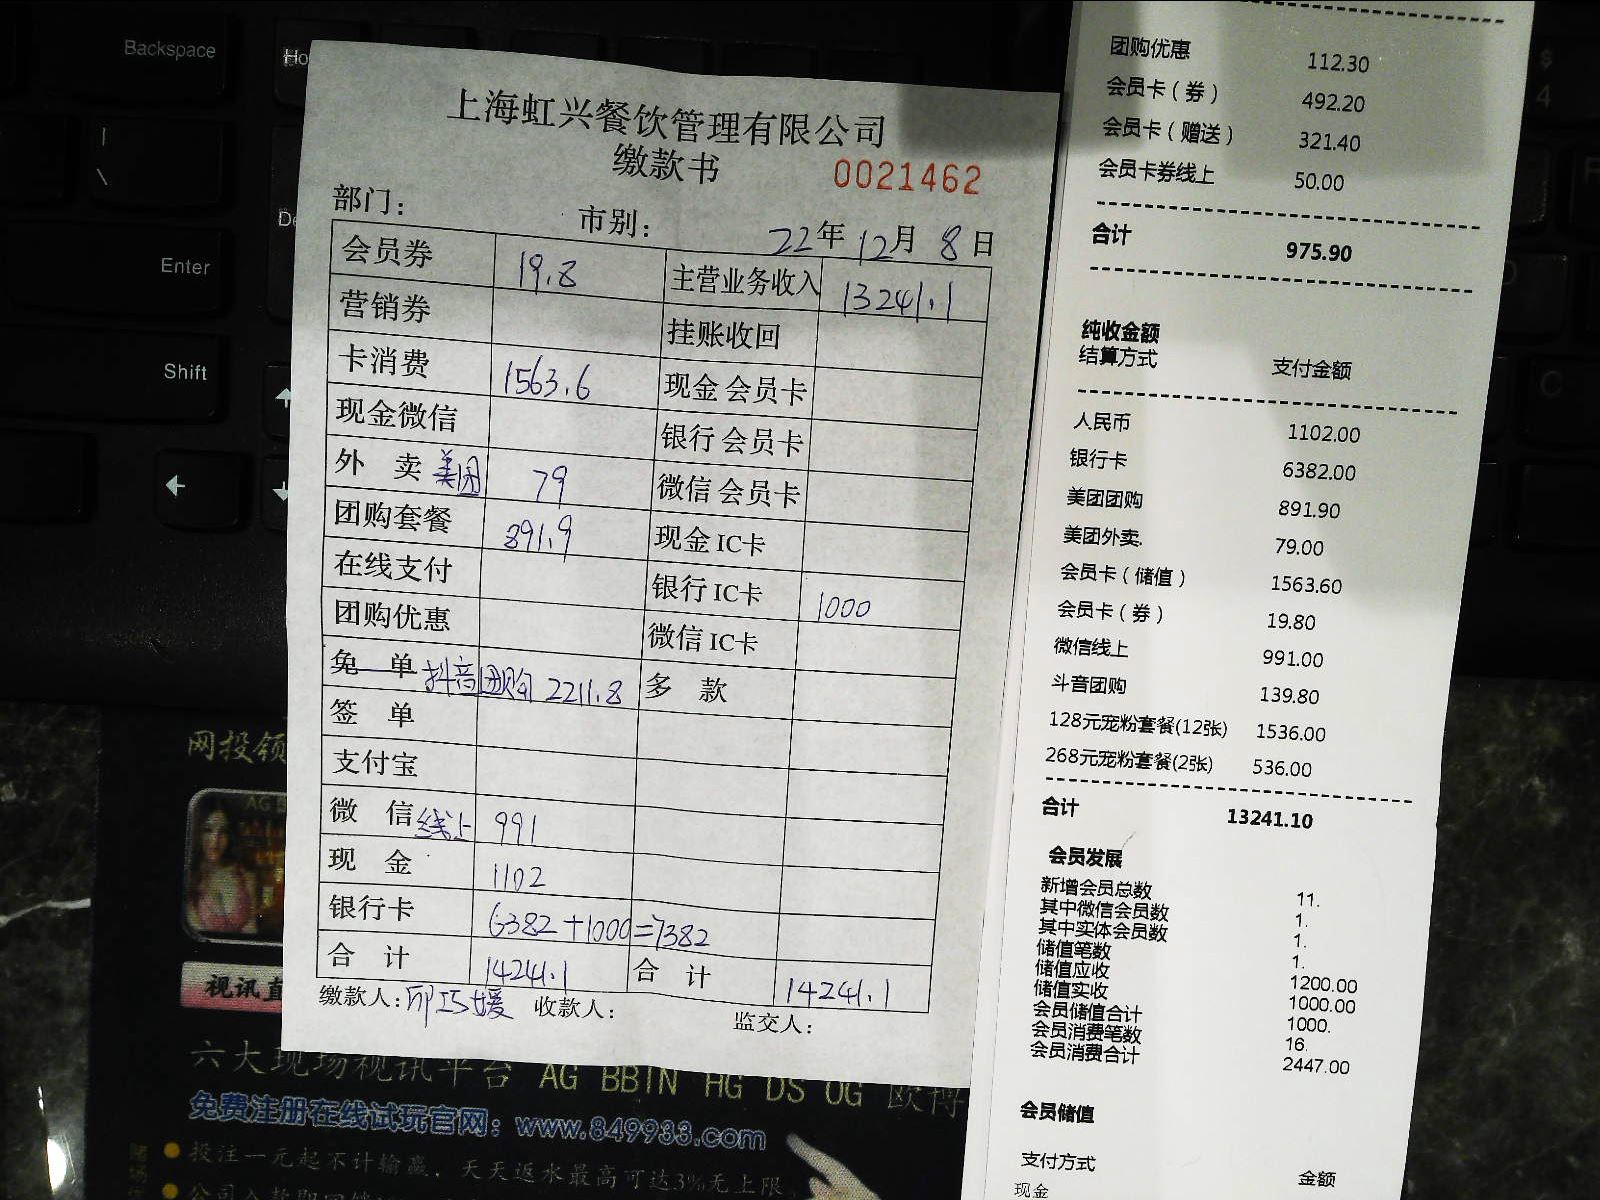 Backspace
Enter
Shift
上海虹兴餐饮管理有限公司
缴款书 0021462
部门： 市别： 22年12月8日
会员券 19.8 主营业务收入 13241.1
营销券 挂账收回
卡消费 1563.6 现金会员卡
现金微信 银行会员卡
外 卖 美团 79 微信会员卡
团购套餐 891.9 现金IC卡
在线支付 银行IC卡 1000
团购优惠 微信IC卡
免 单 抖音团购 2211.8 多 款
签 单
支付宝
微 信 线上 991
现 金 1102
银行卡 6382+1000=7382
合 计 14241.1 合 计 14241.1
缴款人: 邝巧媛 收款人: 监交人:
团购优惠 112.30
会员卡（券） 492.20
会员卡（赠送） 321.40
会员卡券线上 50.00
合计 975.90
纯收金额
结算方式 支付金额
人民币 1102.00
银行卡 6382.00
美团团购 891.90
美团外卖 79.00
会员卡（储值） 1563.60
会员卡（券） 19.80
微信线上 991.00
斗音团购 139.80
128元宠粉套餐(12张) 1536.00
268元宠粉套餐(2张) 536.00
合计 13241.10
会员发展
新增会员总数 11.
其中微信会员数 1.
其中实体会员数 1.
储值笔数 1.
储值应收 1200.00
储值实收 1000.00
会员储值合计 1000.
会员消费笔数 16.
会员消费合计 2447.00
会员储值
支付方式 金额
现金
网投领
视讯直
六大现场视讯平台 AG BBIN HG DS OG 欧博
免费注册在线试玩官网：www.849933.com
投注一元起不计输赢，天天返水最高可达3%无上限，